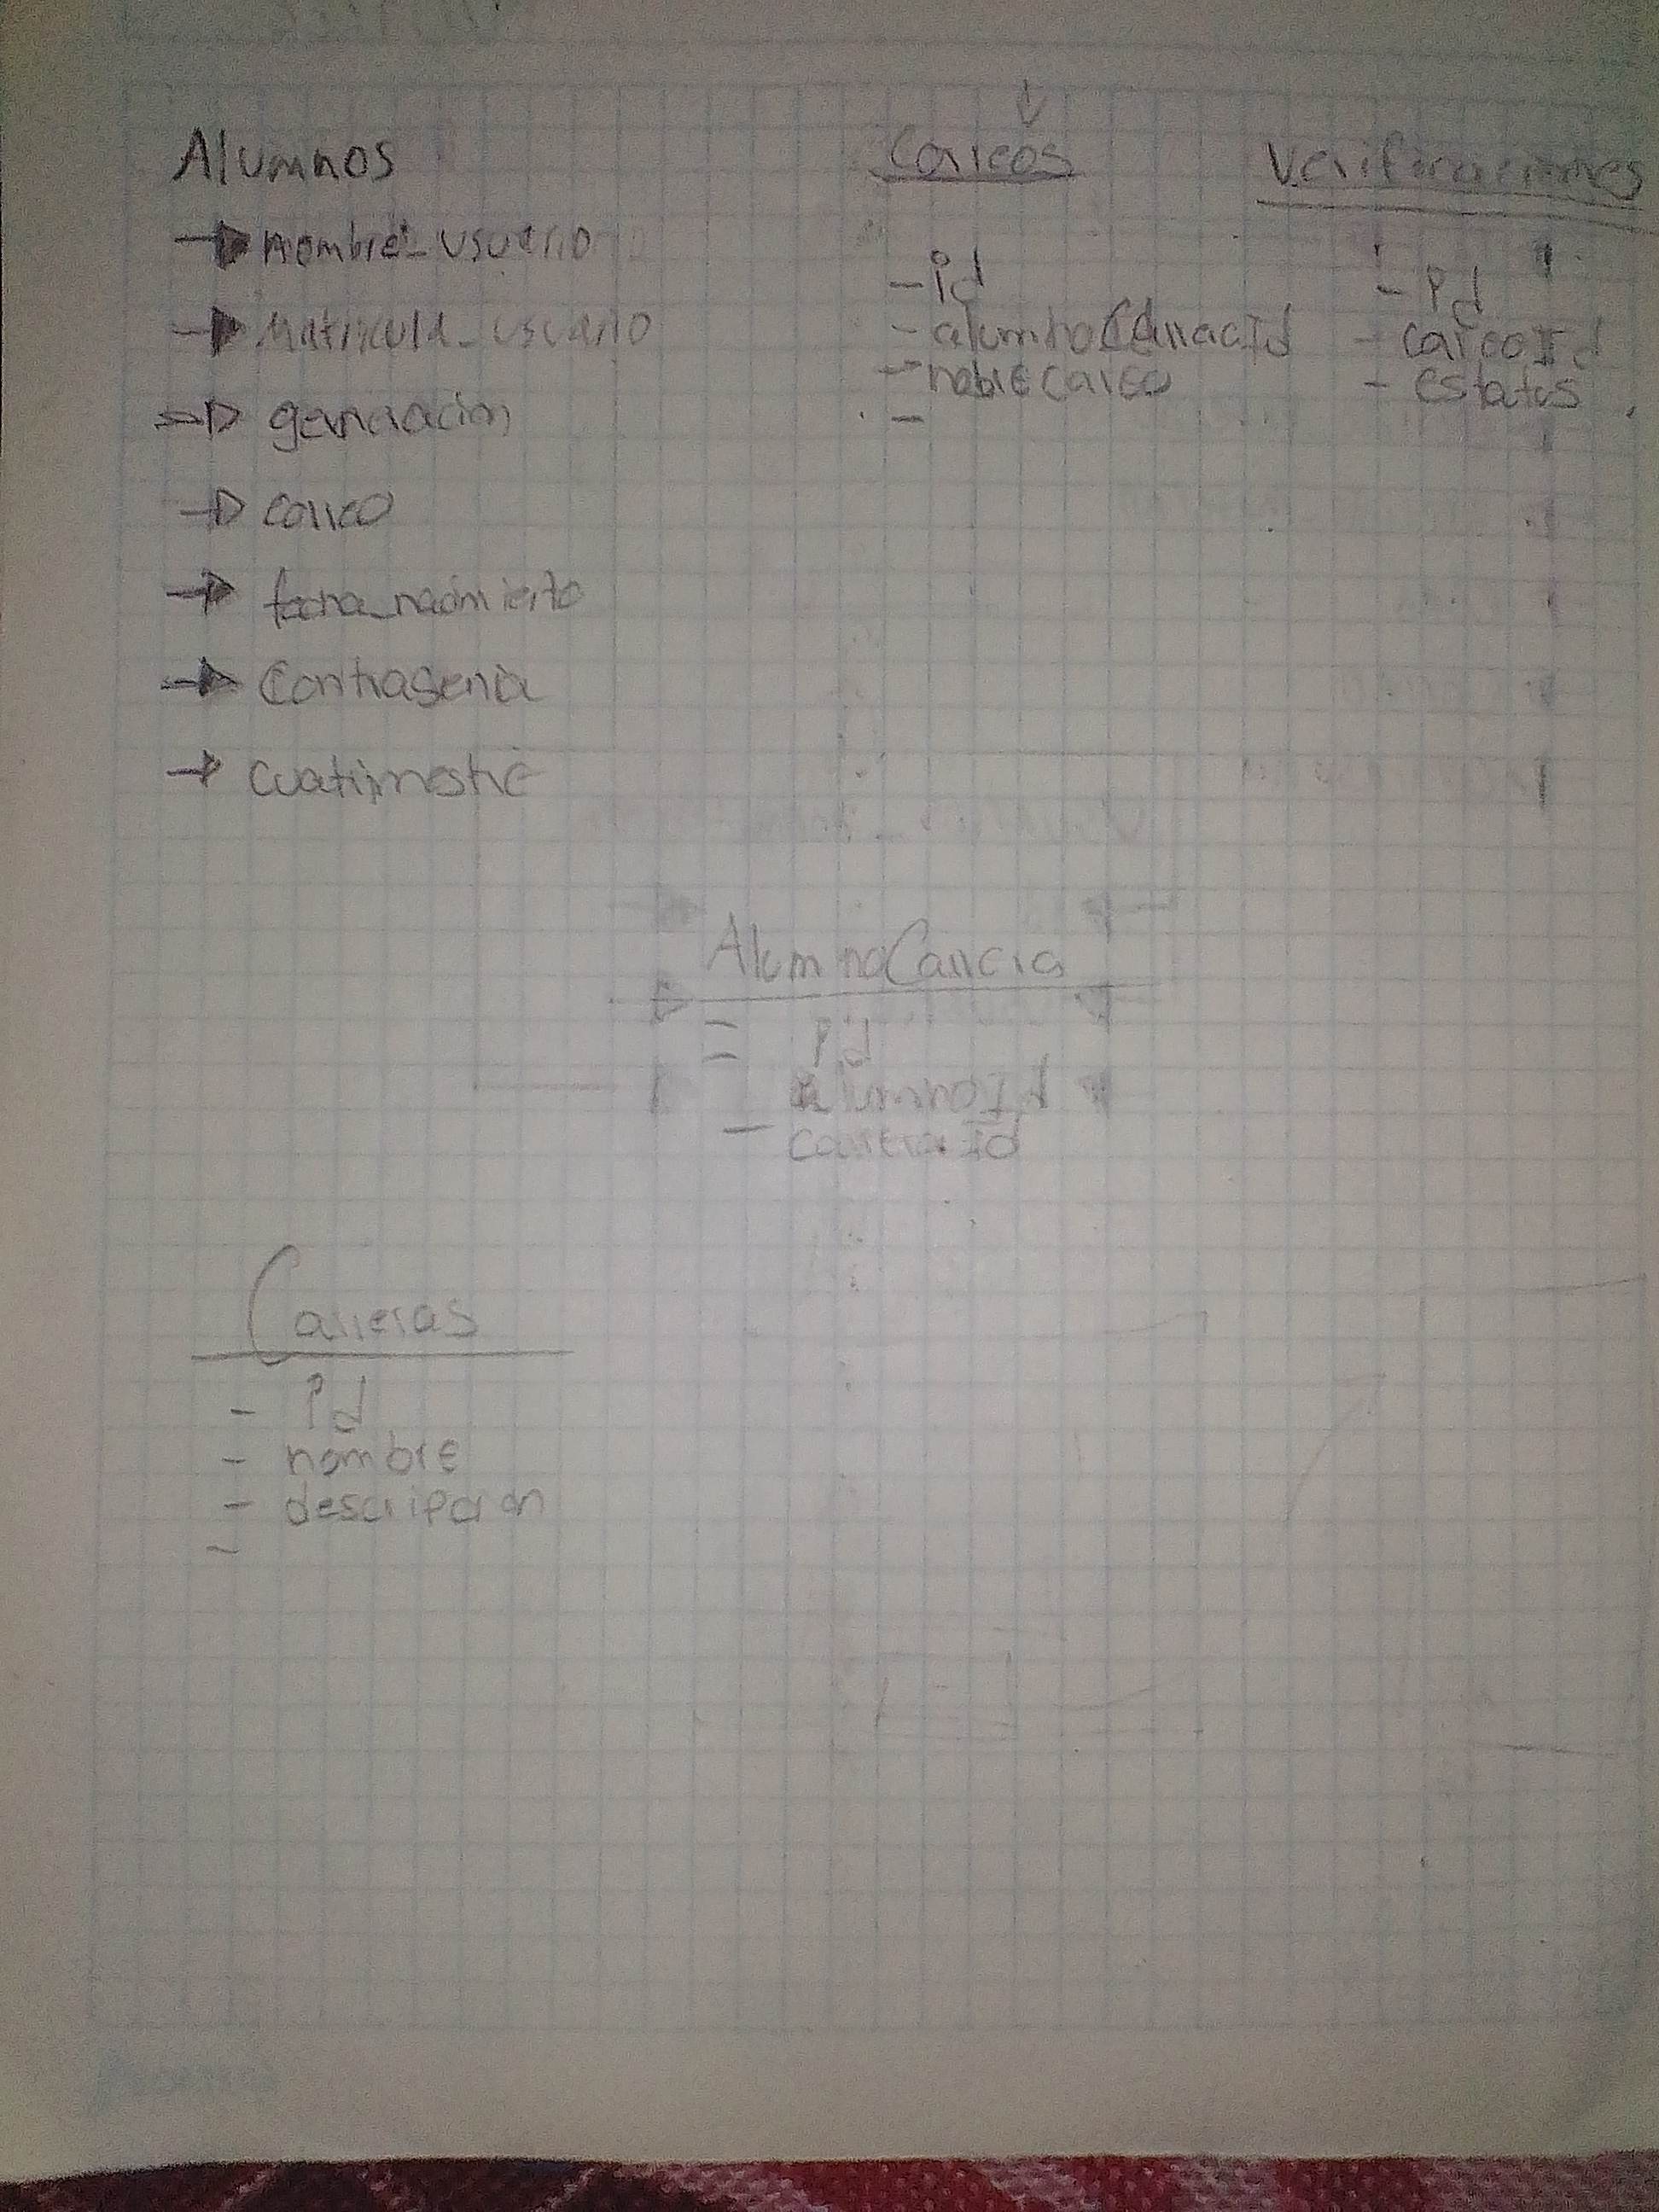 Alumnos
nombre_usuario
Matricula_usuario
generación
correo
fecha_nacimiento
Contrasenia
Cuatrimestre
Correos
- id
- alumnoCarreraId
- nobre correo
-
Verificaciones
- id
- correoId
- estatus
AlumnoCarrera
- id
- alumnoId
- carreraId
Carreras
- id
- nombre
- descripcion
-